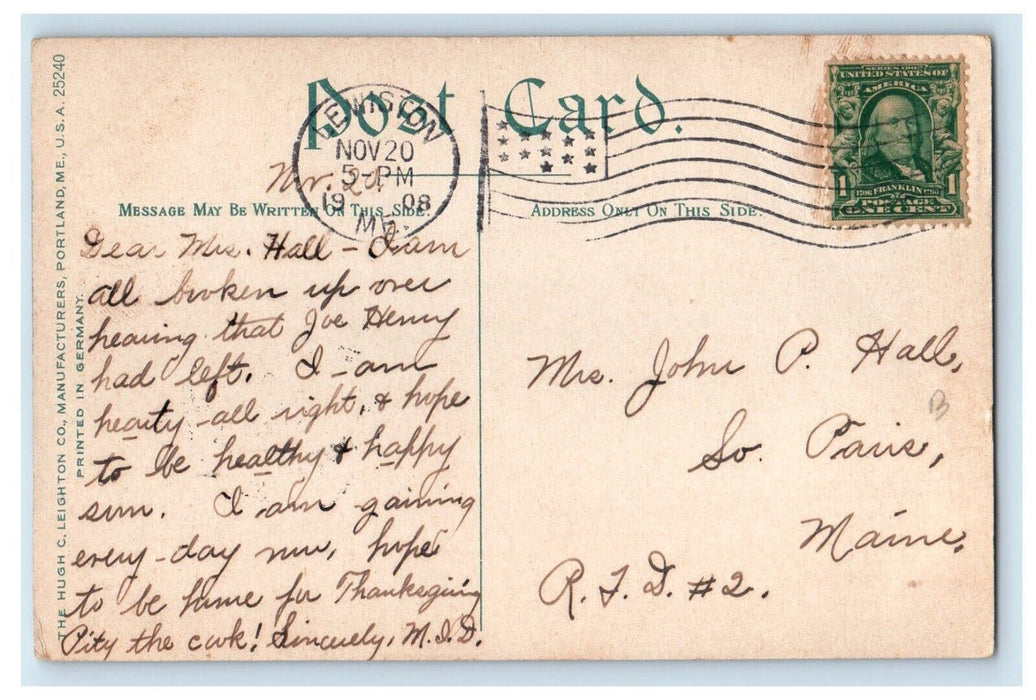 THE HUGH C. LEIGHTON CO., MANUFACTURERS, PORTLAND, ME., U.S.A. 25240
PRINTED IN GERMANY.
Post Card.
LEWISTON
NOV 20
5-PM
1908
ME.
SERIES 1902
UNITED STATES OF
AMERICA
1706 FRANKLIN 1790
1 1
POSTAGE
ONE CENT
Nov. 20
MESSAGE MAY BE WRITTEN ON THIS SIDE.
ADDRESS ONLY ON THIS SIDE.
Dear Mrs. Hall - I am
all broken up over
hearing that Joe Henry
had left. I am
hearty all right, & hope
to be healthy & happy
soon. I am gaining
every day now, hope
to be home for Thanksgiving
Pity the cook! Sincerely, M.I.D.
Mrs. John P. Hall,
So. Paris,
Maine.
R.F.D. #2.
B